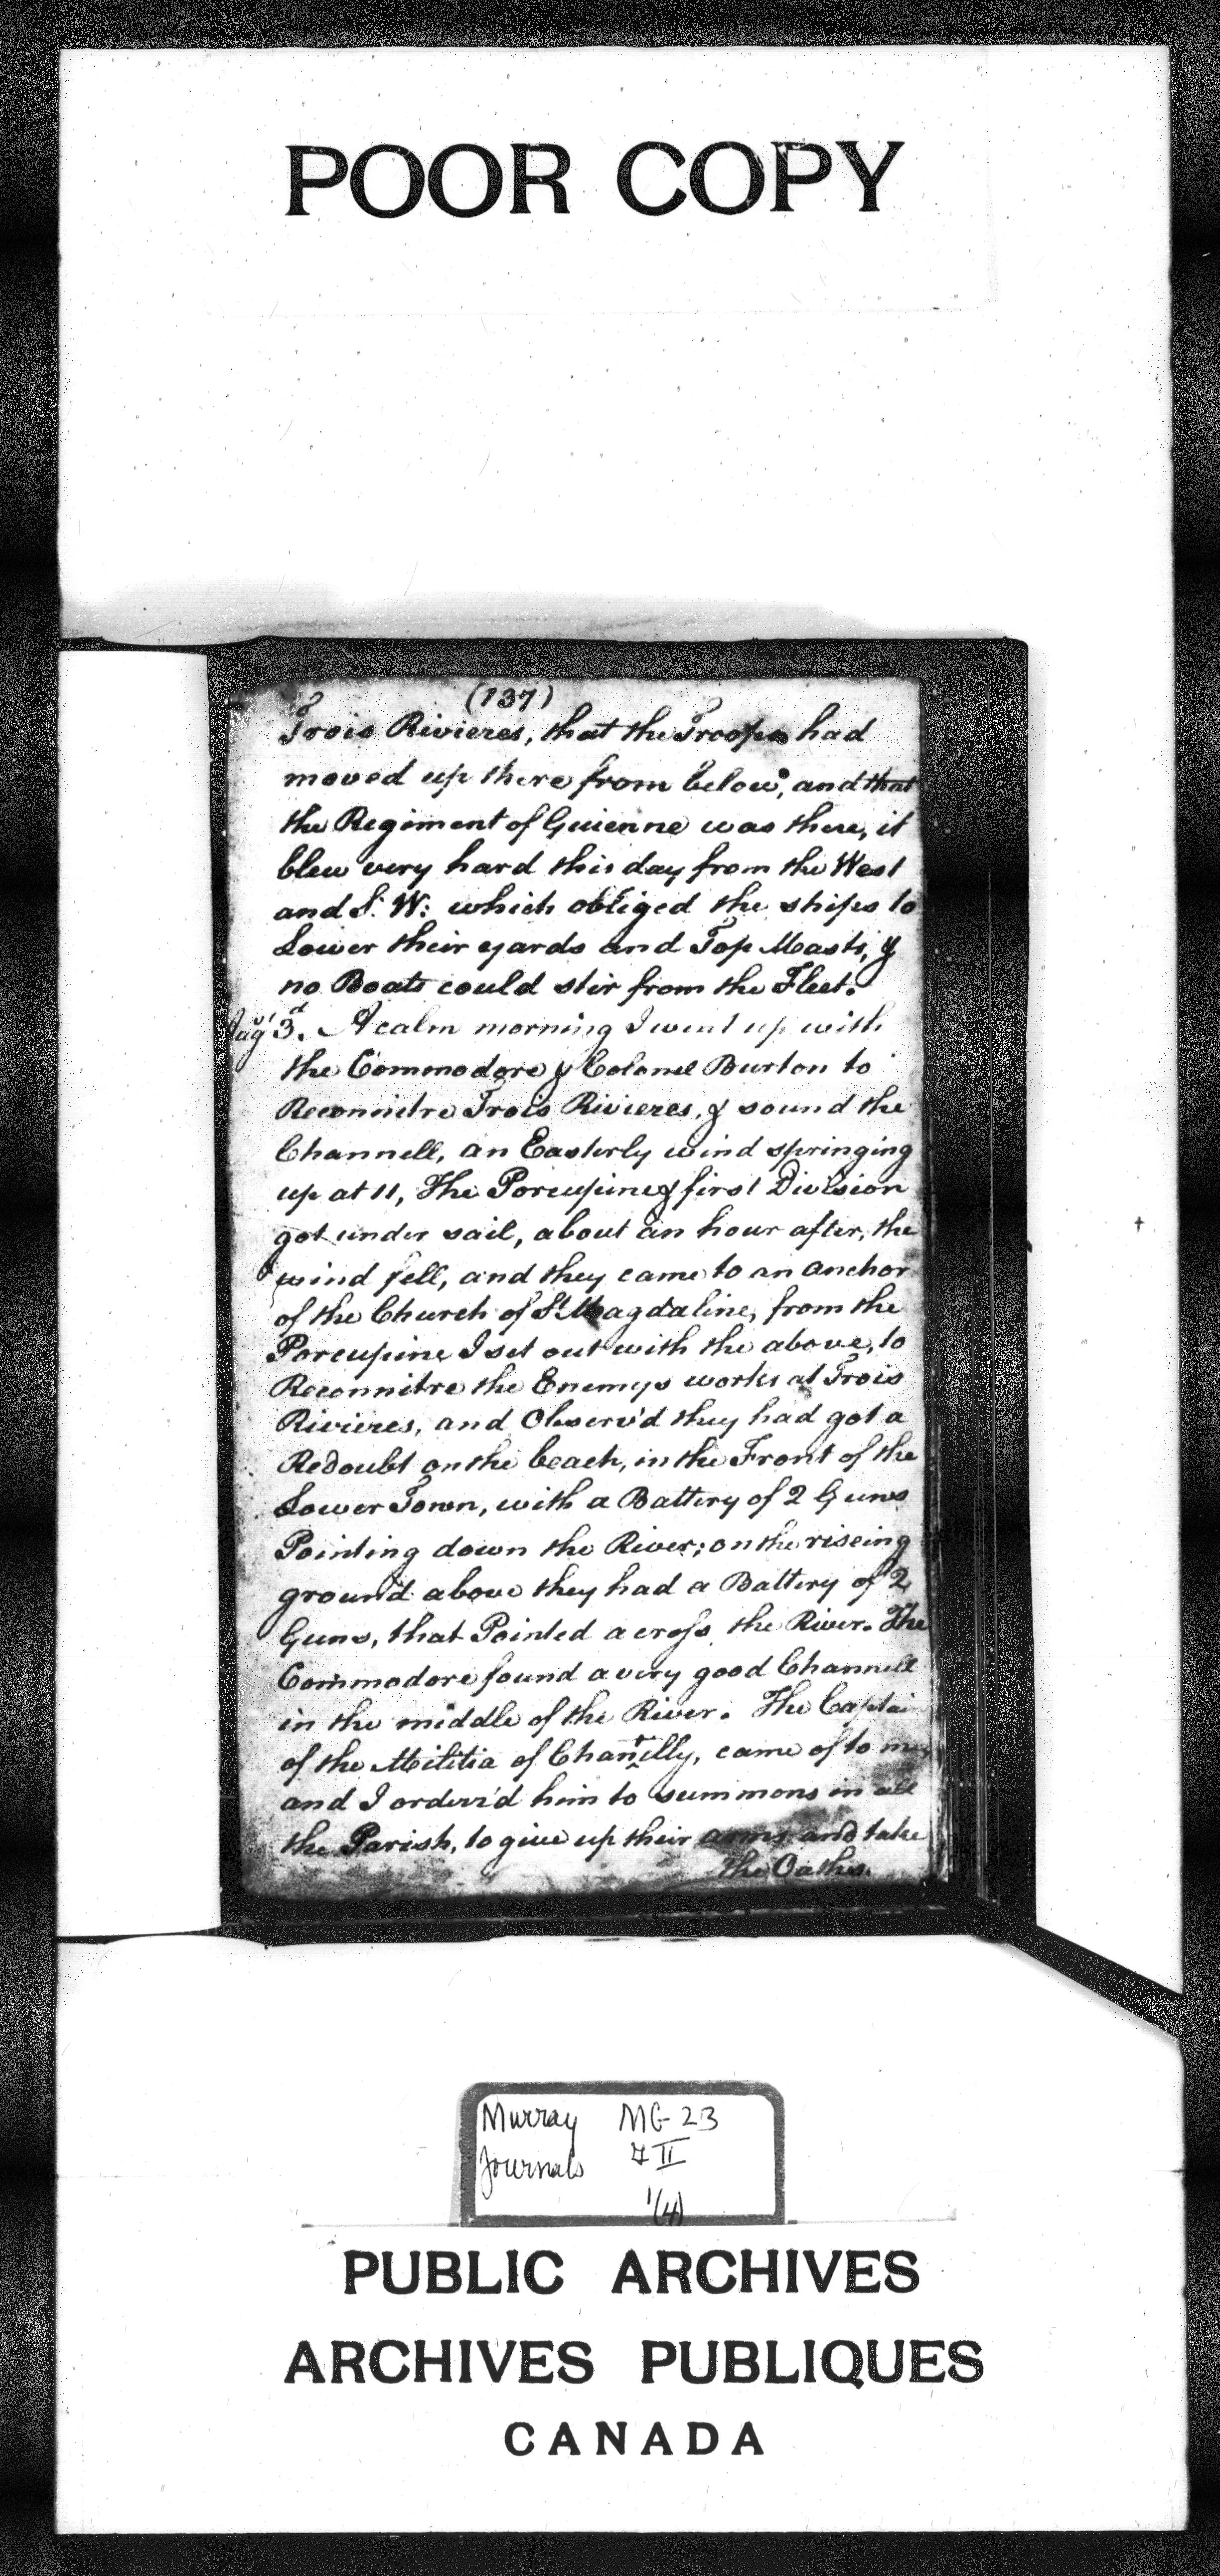 POOR COPY
(137)
Trois Rivieres, that the Troops had
moved up there from below, and that
the Regiment of Guienne was there, it
blew very hard this day from the West
and S. W: which obliged the ships to
Lower their yards and Top Masts, &
no Boats could stir from the Fleet.
Augt 3d. A calm morning I went up with
the Commodore & Colonel Burton to
Reconnitre Trois Rivieres, & sound the
Channell, an Easterly wind springing
up at 11, The Porcupine & first Division
got under sail, about an hour after, the
wind fell, and they came to an anchor
of the Church of St Magdaline, from the
Porcupine I set out with the above, to
Reconnitre the Enemys works at Trois
Rivieres, and Observ'd they had got a
Redoubt on the beach, in the Front of the
Lower Town, with a Battery of 2 Guns
Pointing down the River; on the riseing
ground above they had a Battery of 2
Guns, that Pointed across the River. The
Commodore found a very good Channell
in the middle of the River. The Captain
of the Militia of Chantilly, came of to me,
and I order'd him to summons in all
the Parish, to give up their arms and take
the Oaths.
Murray MG 23
Journals
II
1(4)
PUBLIC ARCHIVES
ARCHIVES PUBLIQUES
CANADA